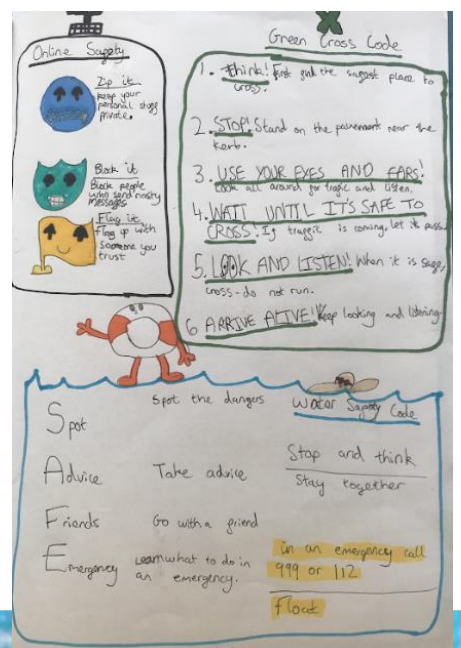 Online Safety
Zip it
keep your
personal stuff
private.
Block it
Block people
who send nasty
messages
Flag it
Flag up with
someone you
trust
Green Cross Code
1. Think! First find the safest place to
cross.
2. STOP! Stand on the pavement near the
kerb.
3. USE YOUR EYES AND EARS!
Look all around for traffic and listen.
4. WAIT UNTIL IT'S SAFE TO
CROSS! If traffic is coming, let it pass.
5. LOOK AND LISTEN! When it is safe,
cross - do not run.
6 ARRIVE ALIVE! Keep looking and listening.
Spot
Spot the dangers
Advice
Take advice
Friends
Go with a friend
Emergency
Learn what to do in
an emergency.
Water Safety Code
Stop and think
Stay together
in an emergency call
999 or 112
Float